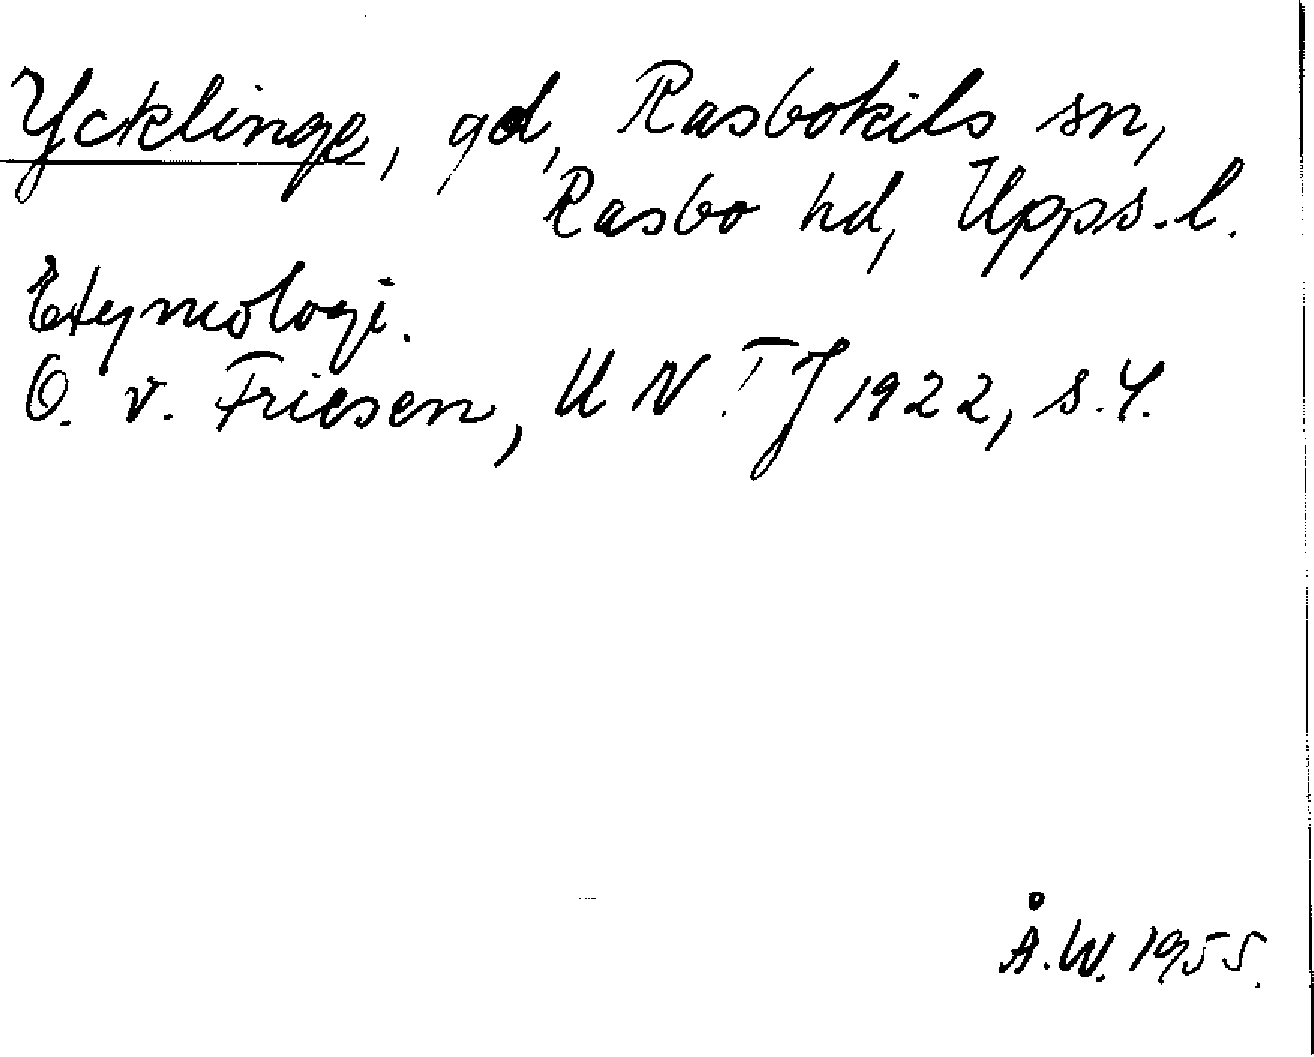 Ycklinge, gd, Rasbokils sn,
Rasbo hd, Upps. l.
Etymologi.
O. v. Friesen, UN. TJ 1922, s. 4.
Å.W. 1955.